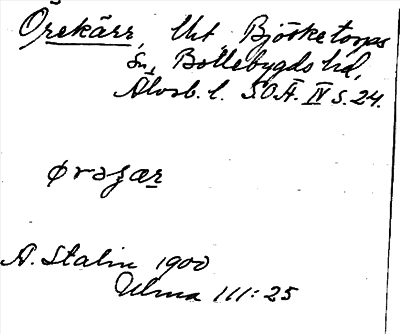 Örekärr, Utt Björketorps
Sn, Bollebygds hd,
Älvsb. l. SOÄ. IV s. 24.
ørɘʒær
A. Stalin 1900
Ulma 111:25